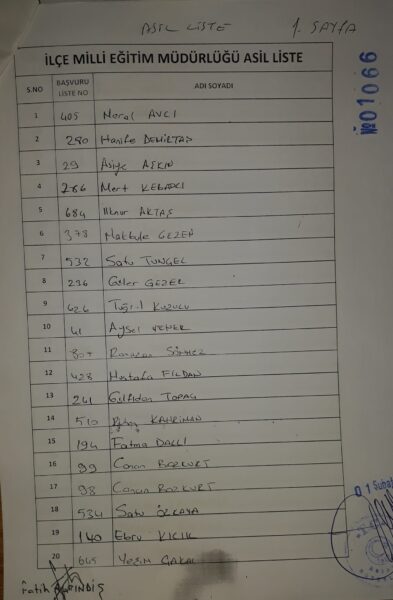 ASIL LİSTE 1. SAYFA
№01066
İLÇE MİLLİ EĞİTİM MÜDÜRLÜĞÜ ASİL LİSTE
S.NO BAŞVURU LİSTE NO ADI SOYADI
1 405 Meral AVCI
2 280 Hanife DEMİRTAŞ
3 29 Asiye AŞKIN
4 286 Mert KEBAPCI
5 684 İlknur AKTAŞ
6 378 Makbule GEZEN
7 532 Satu TUNGEL
8 236 Güler GEZER
9 426 Tuğrul KUZUCU
10 41 Aysel YENER
11 Ramazan SÖNMEZ
12 428 Mustafa FİLDAN
13 241 Gülfidan TOPAÇ
14 510 KAHRİMAN
15 194 Fatma DALLI
16 99 Canan BOZKURT
17 98 Canan BOZKURT
18 534 Satı ÖZKAYA
19 140 Ebru KILIK
20 665 Yeşim
01 Şubat
Fatih